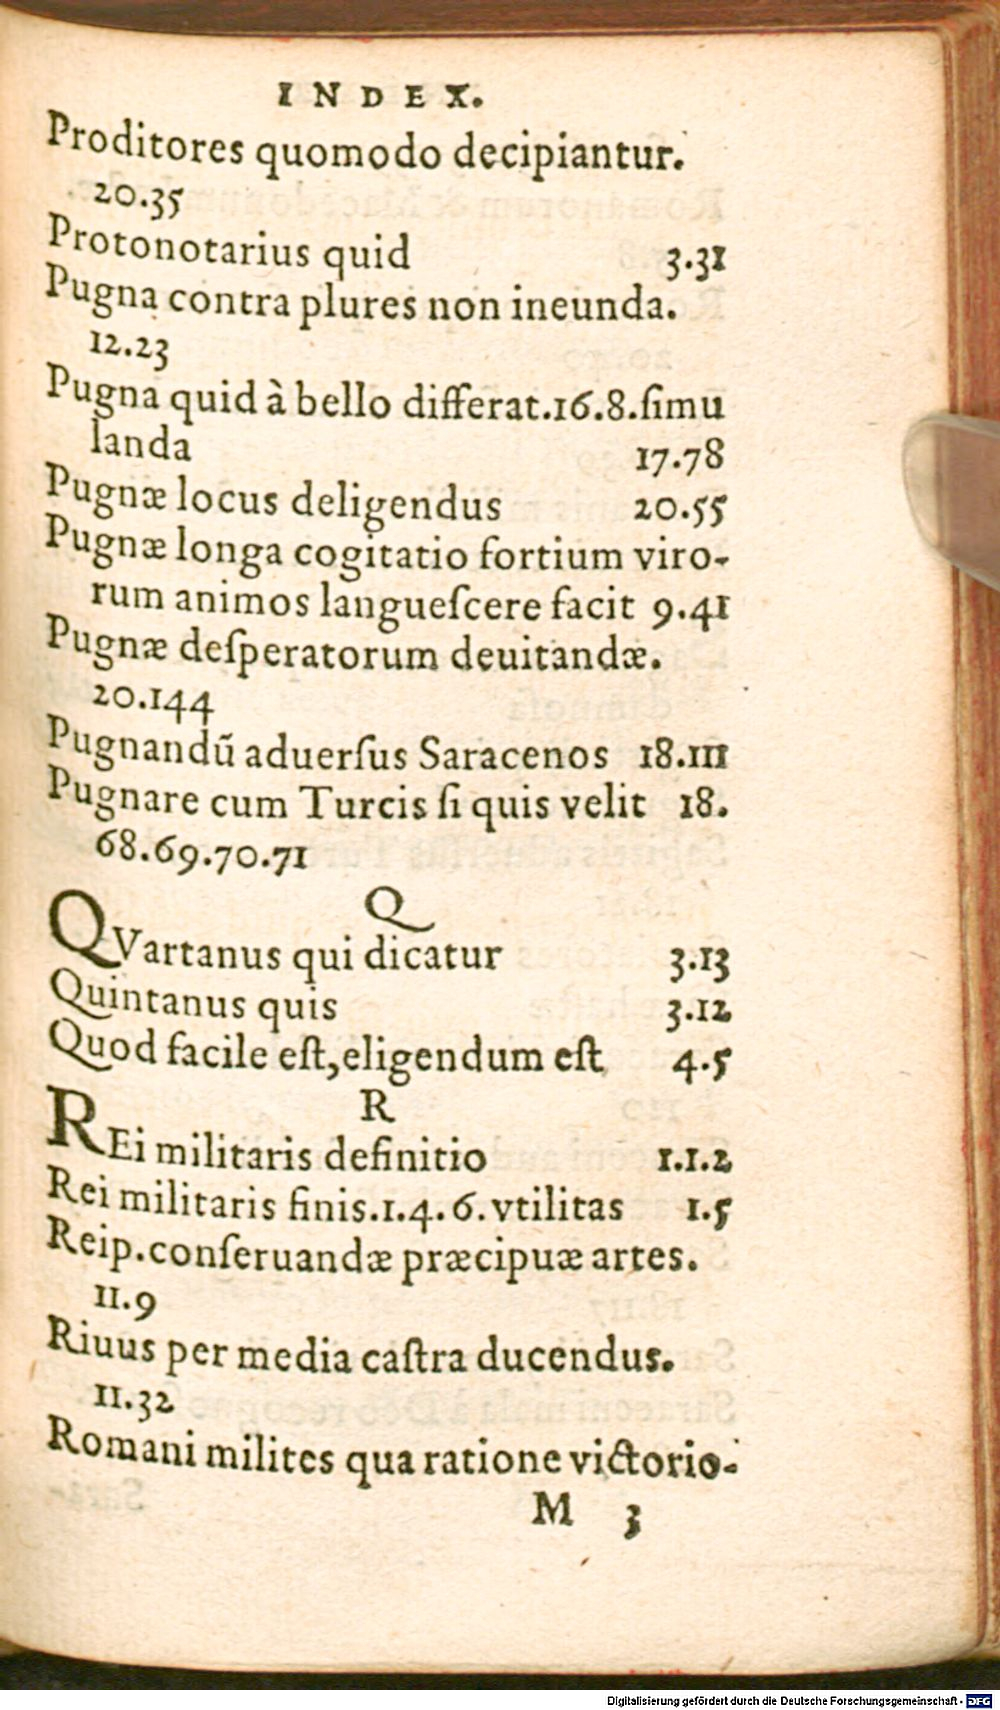 INDEX.
Proditores quomodo decipiantur.
20.35
Protonotarius quid 3.31
Pugna contra plures non ineunda.
12.23
Pugna quid à bello differat.16.8.ſimu
landa 17.78
Pugnæ locus deligendus 20.55
Pugnæ longa cogitatio fortium viro-
rum animos langueſcere facit 9.41
Pugnæ deſperatorum deuitandæ.
20.144
Pugnandū aduerſus Saracenos 18.111
Pugnare cum Turcis ſi quis velit 18.
68.69.70.71
Q
QVartanus qui dicatur 3.13
Quintanus quis 3.12
Quod facile eſt,eligendum eſt 4.5
R
REi militaris definitio 1.1.2
Rei militaris finis.1.4.6.vtilitas 1.5
Reip.conſeruandæ præcipuæ artes.
11.9
Riuus per media caſtra ducendus.
11.32
Romani milites qua ratione victorio-
M 3
Digitalisierung gefördert durch die Deutsche Forschungsgemeinschaft - DFG